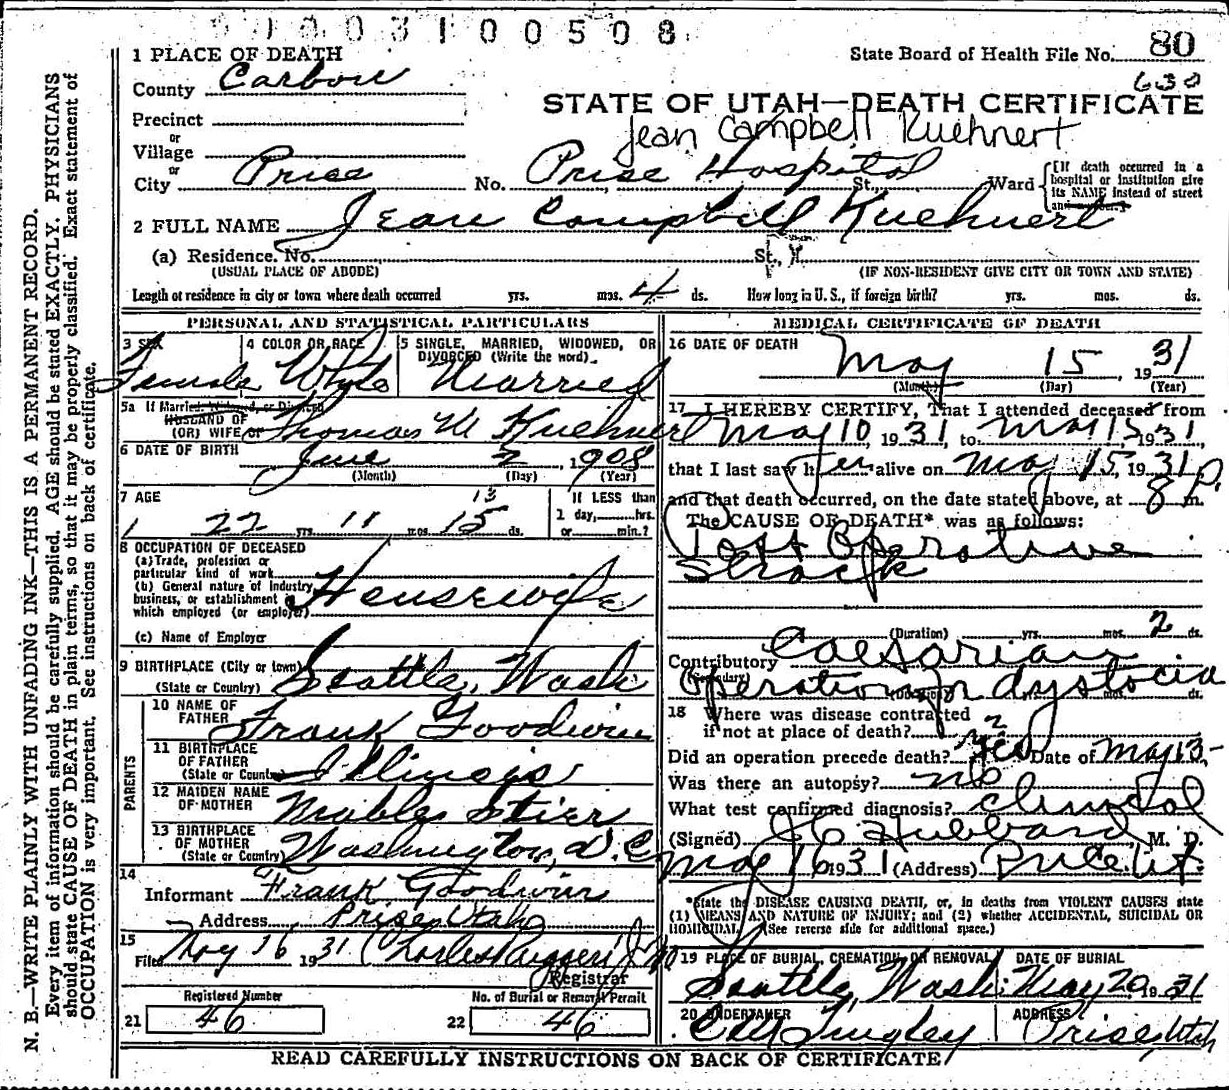 9 1 0 0 3 1 0 0 5 0 8
1 PLACE OF DEATH
State Board of Health File No. 80
County Carbon
630
STATE OF UTAH—DEATH CERTIFICATE
Precinct
Jean Campbell Kuehnert
or
Village
or
City Price No. Price Hospital St., Ward
[If death occurred in a
hospital or institution give
its NAME instead of street
2 FULL NAME Jean Campbell Kuehnert
(a) Residence. No. St.,
(USUAL PLACE OF ABODE) (IF NON-RESIDENT GIVE CITY OR TOWN AND STATE)
Length of residence in city or town where death occurred yrs. mos. 4 ds. How long in U. S., if foreign birth? yrs. mos. ds.
PERSONAL AND STATISTICAL PARTICULARS
3 SEX 4 COLOR OR RACE 5 SINGLE, MARRIED, WIDOWED, OR
DIVORCED (Write the word)
Female White Married
5a If Married, Widowed, or Divorced
HUSBAND OF
(OR) WIFE OF Thomas W Kuehnert
6 DATE OF BIRTH June 2, 1908
(Month) (Day) (Year)
7 AGE 13 If LESS than
22 yrs. 11 mos. 15 ds. 1 day, hrs.
or min.?
8 OCCUPATION OF DECEASED
(a) Trade, profession or
particular kind of work
(b) General nature of Industry
business, or establishment in
which employed (or employer) Housewife
(c) Name of Employer
9 BIRTHPLACE (City or town)
(State or Country) Seattle, Wash
PARENTS
10 NAME OF
FATHER Frank Goodwin
11 BIRTHPLACE
OF FATHER
(State or Country) Illinois
12 MAIDEN NAME
OF MOTHER Mable Stier
13 BIRTHPLACE
OF MOTHER
(State or Country) Washington, D.C.
14
Informant Frank Goodwin
Address Price Utah
15
Filed May 16 1931 Charles Ruggeri Jr MD
Registrar
Registered Number No. of Burial or Removal Permit
21 46 22 46
MEDICAL CERTIFICATE OF DEATH
16 DATE OF DEATH
May 15, 1931
(Month) (Day) (Year)
17 I HEREBY CERTIFY, That I attended deceased from
May 10, 1931, to May 15 1931
that I last saw her alive on May 15, 1931
and that death occurred, on the date stated above, at 8 P. m.
The CAUSE OF DEATH* was as follows:
Post Operative
Shock
(Duration) yrs. mos. 2 ds.
Contributory Caesarian
(Secondary) operation for dystocia
(Duration) yrs. mos. ds.
18 Where was disease contracted
if not at place of death? ?
Did an operation precede death? Yes Date of May 13-
Was there an autopsy? no
What test confirmed diagnosis? clinical
(Signed) J C Hubbard, M. D.
May 16 1931 (Address) Price Ut.
*State the DISEASE CAUSING DEATH, or, in deaths from VIOLENT CAUSES state
(1) MEANS AND NATURE OF INJURY; and (2) whether ACCIDENTAL, SUICIDAL OR
HOMICIDAL. (See reverse side for additional space.)
19 PLACE OF BURIAL, CREMATION, OR REMOVAL DATE OF BURIAL
Seattle, Wash. May 20, 1931
20 UNDERTAKER ADDRESS
Price, Utah
READ CAREFULLY INSTRUCTIONS ON BACK OF CERTIFICATE
N. B.—WRITE PLAINLY WITH UNFADING INK—THIS IS A PERMANENT RECORD.
Every item of information should be carefully supplied. AGE should be stated EXACTLY. PHYSICIANS
should state CAUSE OF DEATH in plain terms, so that it may be properly classified. Exact statement of
OCCUPATION is very important. See instructions on back of certificate.